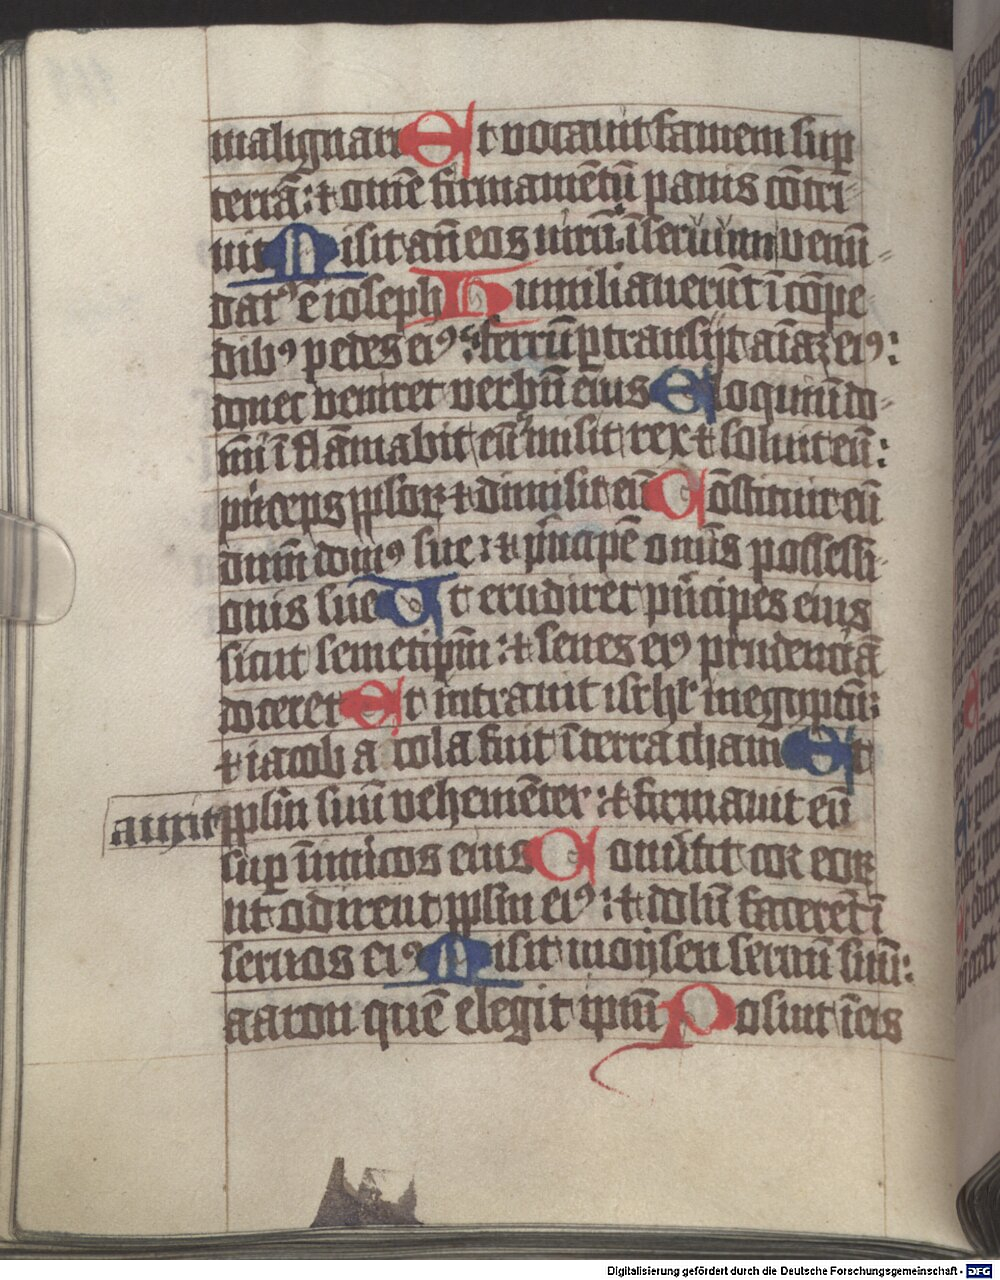 malignari Et vocavit famem sup
terrā: ⁊ omē firmamētū panis cōtri
vit Misit añ eos virū: ī servum venū
dat⁹ ē ioseph Humiliaverūt ī cōpe
dib⁹ pedes ei⁹: ferrū ꝑtransijt aīaʒ ei⁹:
donec veniret verbū eius Eloquium do
mī īflāmabit eū misit rex ⁊ soluit eū:
pͥnceps pplorꝝ ⁊ dimisit eū Cōstituit eū
dum̄ dom⁹ sue: ⁊ pͥncipē omīs possessi
onis sue Ut erudiret pͥncipes eius
sicut semetipm̄: ⁊ senes ei⁹ prudenciā
doceret Et intravit isrhl' in egyptū:
⁊ iacob a cola fuit ī terra cham Et
auxit pplm̄ suū vehemēter: ⁊ firmavit eū
sup inimicos eius Convͥtit cor eorꝝ
ut odirent pplm̄ ei⁹: ⁊ dolū facerēt ī
servos ei⁹ Misit moysen servū suū:
aaron quē elegit ipm̄ Posuit ī eis
Digitalisierung gefördert durch die Deutsche Forschungsgemeinschaft - DFG